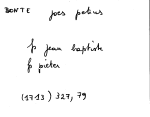 BONTE joes petrus
fs jean baptiste
fs pieter
(1713) 327, 79